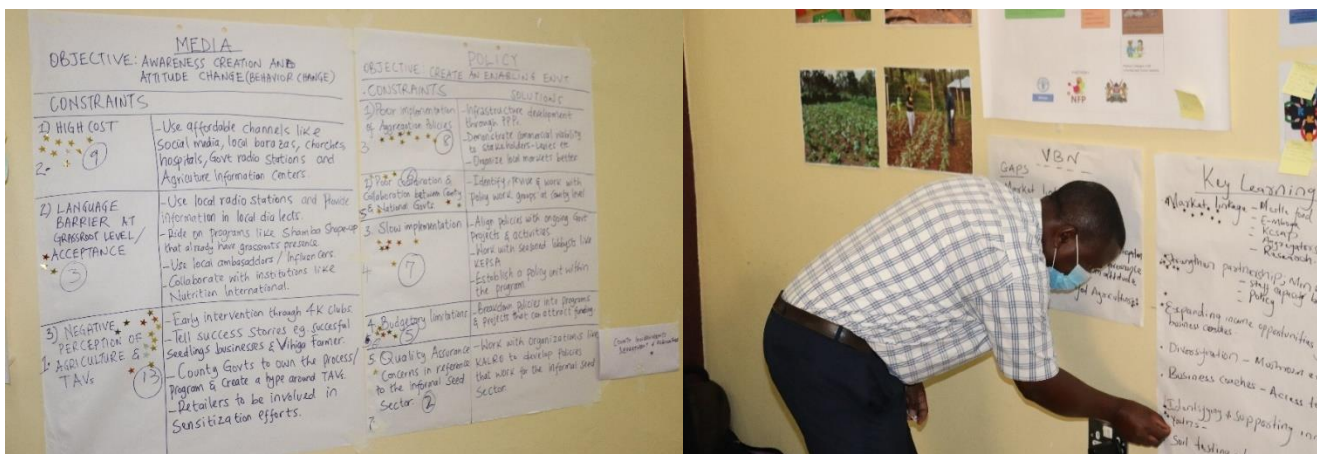 MEDIA
OBJECTIVE: AWARENESS CREATION AND
ATTITUDE CHANGE (BEHAVIOR CHANGE)
CONSTRAINTS
1) HIGH COST
9
2-
- Use affordable channels like
Social media, local barazas, churches,
hospitals, Govt radio stations and
Agriculture Information Centers.
2) LANGUAGE
BARRIER AT
GRASSROOT LEVEL/
ACCEPTANCE
3
- Use local radio stations and
information in local dialects.
- Ride on programs like Shamba Shape-up
that already have grassroots presence
- Use local ambassadors/ Influencers.
- Collaborate with institutions like
Nutrition International.
3) NEGATIVE
PERCEPTION OF
1- AGRICULTURE &
TAVs
13
- Early intervention through 4K Clubs.
- Tell success stories eg. succesful
Seedlings businesses & Vihiga farmer.
- County Govts to own the process/
program & create a hype around TAVs.
- Retailers to be involved in
Sensitization efforts.
POLICY
OBJECTIVE: CREATE AN ENABLING ENVT.
CONSTRAINTS
SOLUTIONS
1) Poor implementation
of Aggregation Policies
3
8
- Infrastructure development
through PPPs
- Demonstrate commercial viability
to stakeholders
- Organize local markets better
2) Poor Coordination &
Collaboration between County
& National Govts
6
5
- Identify, revise & work with
policy work groups at county level
3. Slow implementation
4
7
- Align policies with ongoing Govt
Projects & activities
- Work with seasoned lobbyists like
KEPSA
- Establish a policy unit within
the program
4. Budgetary limitations
5
- Breakdown policies into programs
& projects that can attract funding
5. Quality Assurance
Concerns in reference
to the informal seed
Sector.
2
- Work with organizations like
KALRO to develop policies
that work for the informal seed
Sector
NFP
VBN
GAPS
Market
Key Learning
Market linkage
KCSAP
Aggregators
Research
Strengthen partnership;
Policy
Expanding income opportunities
business coaches
Diversification - Mushroom
Business coaches - Access to
Identifying & supporting
Soil testing